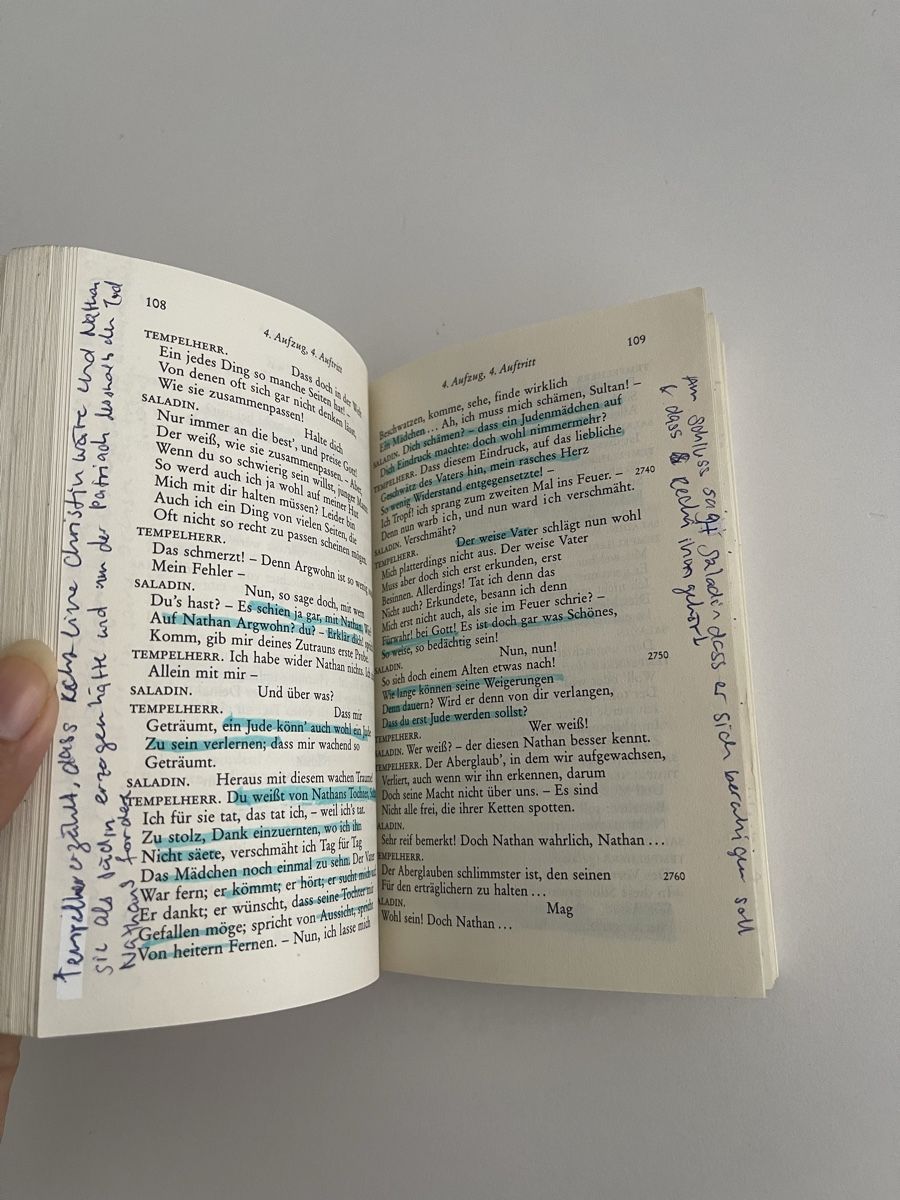 Tempelherr erzählt, dass Recha eine Christin wäre und Nathan
sie als Jüdin erzogen hätte und nun der Patriach deshalb den Tod
Nathans fordere
108
4. Aufzug, 4. Auftritt
TEMPELHERR.
Dass doch in der Welt
Ein jedes Ding so manche Seiten hat! –
Von denen oft sich gar nicht denken lässt,
Wie sie zusammenpassen!
SALADIN.
Halte dich
Nur immer an die best', und preise Gott!
Der weiß, wie sie zusammenpassen. – Aber,
Wenn du so schwierig sein willst, junger Mann:
So werd auch ich ja wohl auf meiner Hut
Mich mit dir halten müssen? Leider bin
Auch ich ein Ding von vielen Seiten, die
Oft nicht so recht zu passen scheinen mögen.
TEMPELHERR.
Das schmerzt! – Denn Argwohn ist so wenig
Mein Fehler –
SALADIN.
Nun, so sage doch, mit wem
Du's hast? – Es schien ja gar, mit Nathan.
Auf Nathan Argwohn? du? – Erklär dich!
Komm, gib mir deines Zutrauns erste Probe.
TEMPELHERR. Ich habe wider Nathan nichts.
Allein mit mir –
SALADIN. Und über was?
TEMPELHERR. Dass mir
Geträumt, ein Jude könn' auch wohl ein Jude
Zu sein verlernen; dass mir wachend so
Geträumt.
SALADIN. Heraus mit diesem wachen Traume!
TEMPELHERR. Du weißt von Nathans Tochter,
Ich für sie tat, das tat ich, – weil ich's tat.
Zu stolz, Dank einzuernten, wo ich ihn
Nicht säete, verschmäht ich Tag für Tag
Das Mädchen noch einmal zu sehn. Der Vater
War fern; er kömmt; er hört; er sucht mich auf
Er dankt; er wünscht, dass seine Tochter mir
Gefallen möge; spricht von Aussicht, spricht
Von heitern Fernen. – Nun, ich lasse mich
109
4. Aufzug, 4. Auftritt
Beschwatzen, komme, sehe, finde wirklich
Ein Mädchen … Ah, ich muss mich schämen, Sultan! –
SALADIN. Dich schämen? – dass ein Judenmädchen auf
Dich Eindruck machte: doch wohl nimmermehr?
TEMPELHERR. Dass diesem Eindruck, auf das liebliche
Geschwätz des Vaters hin, mein rasches Herz
So wenig Widerstand entgegensetzte! –
Ich Tropf! ich sprang zum zweiten Mal ins Feuer. – 2740
Denn nun warb ich, und nun ward ich verschmäht.
SALADIN. Verschmäht?
TEMPELHERR. Der weise Vater schlägt nun wohl
Mich platterdings nicht aus. Der weise Vater
Muss aber doch sich erst erkunden, erst
Besinnen. Allerdings! Tat ich denn das
Nicht auch? Erkundete, besann ich denn
Mich erst nicht auch, als sie im Feuer schrie? –
Fürwahr! bei Gott! Es ist doch gar was Schönes,
So weise, so bedächtig sein!
SALADIN. Nun, nun! 2750
So sieh doch einem Alten etwas nach!
Wie lange können seine Weigerungen
Denn dauern? Wird er denn von dir verlangen,
Dass du erst Jude werden sollst?
TEMPELHERR. Wer weiß!
SALADIN. Wer weiß? – der diesen Nathan besser kennt.
TEMPELHERR. Der Aberglaub', in dem wir aufgewachsen,
Verliert, auch wenn wir ihn erkennen, darum
Doch seine Macht nicht über uns. – Es sind
Nicht alle frei, die ihrer Ketten spotten.
SALADIN.
Sehr reif bemerkt! Doch Nathan wahrlich, Nathan …
TEMPELHERR.
Der Aberglauben schlimmster ist, den seinen 2760
Für den erträglichern zu halten …
SALADIN. Mag
Wohl sein! Doch Nathan …
Am Schluss sagt Saladin dass er sich beruhigen soll
dass Recha ihm gehört